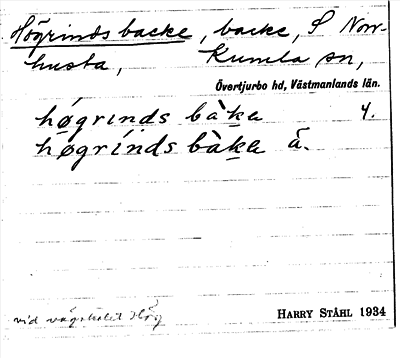 Högrinds backe, backe, S Norr-
husta, Kumla sn,
Övertjurbo hd, Västmanlands län.
hǿgrinds bàka 4.
hǿgrínds bàka ä.
vid vägskälet Hög
HARRY STÅHL 1934